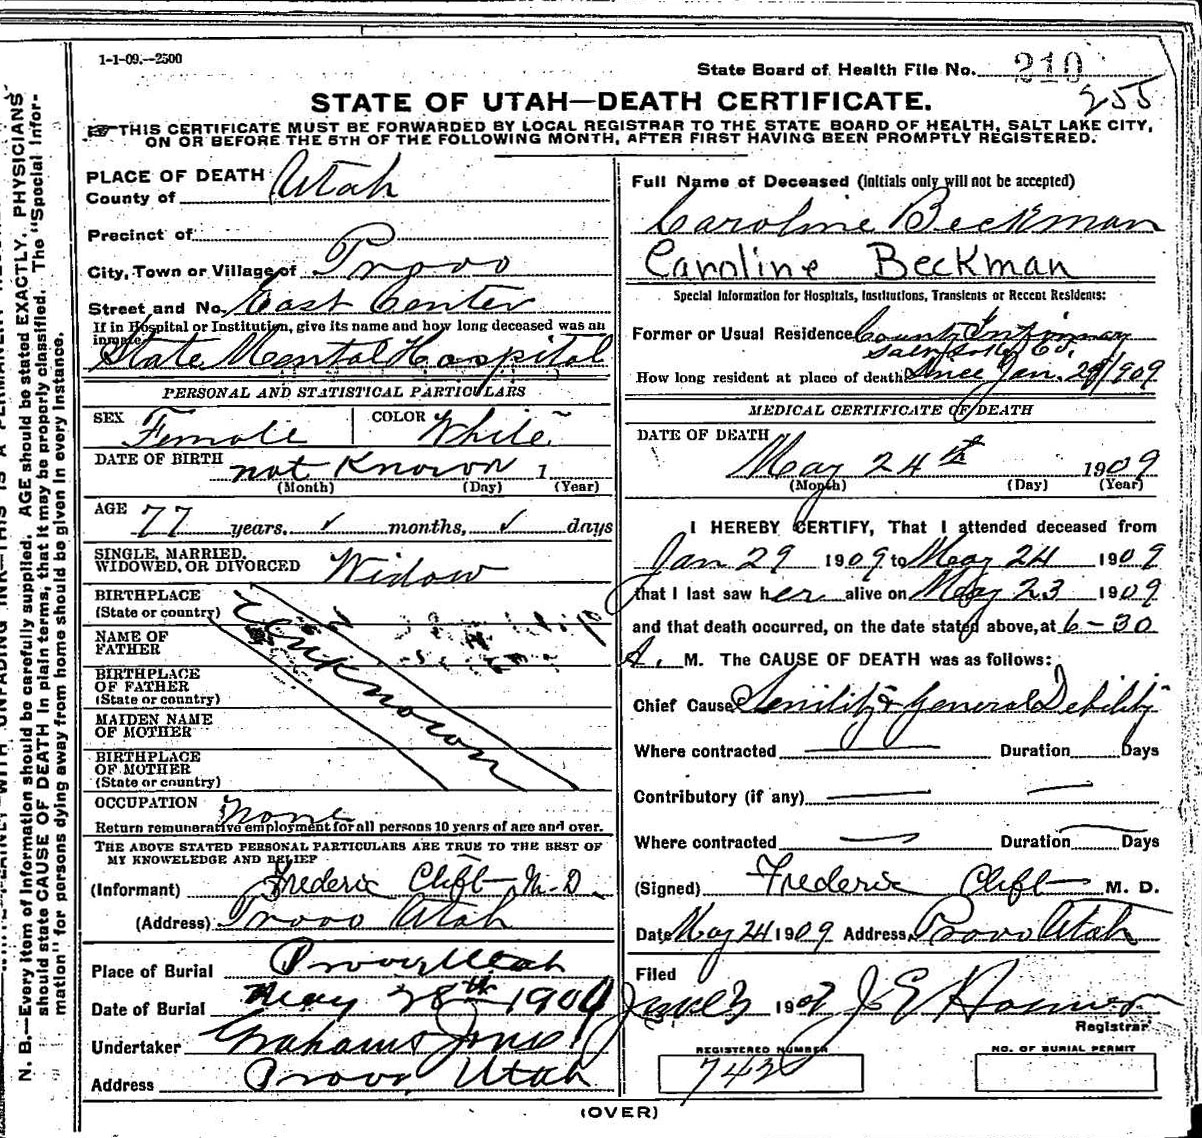 1-1-09.--2500
State Board of Health File No. 210
255
STATE OF UTAH—DEATH CERTIFICATE.
THIS CERTIFICATE MUST BE FORWARDED BY LOCAL REGISTRAR TO THE STATE BOARD OF HEALTH, SALT LAKE CITY,
ON OR BEFORE THE 5TH OF THE FOLLOWING MONTH, AFTER FIRST HAVING BEEN PROMPTLY REGISTERED.
PLACE OF DEATH
County of Utah
Precinct of
City, Town or Village of Provo
Street and No. East Center
If in Hospital or Institution, give its name and how long deceased was an
inmate
State Mental Hospital
PERSONAL AND STATISTICAL PARTICULARS
SEX Female COLOR White
DATE OF BIRTH not Known 1
(Month) (Day) (Year)
AGE 77 years, ✓ months, ✓ days
SINGLE, MARRIED,
WIDOWED, OR DIVORCED Widow
BIRTHPLACE
(State or country)
NAME OF
FATHER
BIRTHPLACE
OF FATHER
(State or country)
MAIDEN NAME
OF MOTHER
BIRTHPLACE
OF MOTHER
(State or country)
Unknown
OCCUPATION None
Return remunerative employment for all persons 10 years of age and over.
THE ABOVE STATED PERSONAL PARTICULARS ARE TRUE TO THE BEST OF
MY KNOWELEDGE AND BELIEF
(Informant) Frederic Clift M.D.
(Address) Provo Utah
Place of Burial Provo, Utah
Date of Burial May 28th 1909
Undertaker Graham & Jones
Address Provo, Utah
Full Name of Deceased (initials only will not be accepted)
Caroline Beckman
Caroline Beckman
Special Information for Hospitals, Institutions, Transients or Recent Residents:
Former or Usual Residence County Infirmary
Salt Lake Co.
How long resident at place of death Since Jan. 29/1909
MEDICAL CERTIFICATE OF DEATH
DATE OF DEATH
May 24th 1909
(Month) (Day) (Year)
I HEREBY CERTIFY, That I attended deceased from
Jan 29 1909 to May 24 1909
that I last saw her alive on May 23 1909
and that death occurred, on the date stated above, at 6-30
A. M. The CAUSE OF DEATH was as follows:
Chief Cause Senility & General Debility
Where contracted Duration Days
Contributory (if any)
Where contracted Duration Days
(Signed) Frederic Clift M. D.
Date May 24 1909 Address Provo Utah
Filed
June 3 1909 J. E.
Registrar
REGISTERED NUMBER
NO. OF BURIAL PERMIT
(OVER)
N. B.—Every item of information should be carefully supplied. AGE should be stated EXACTLY. PHYSICIANS
should state CAUSE OF DEATH in plain terms, that it may be properly classified. The "Special Infor-
mation" for persons dying away from home should be given in every instance.